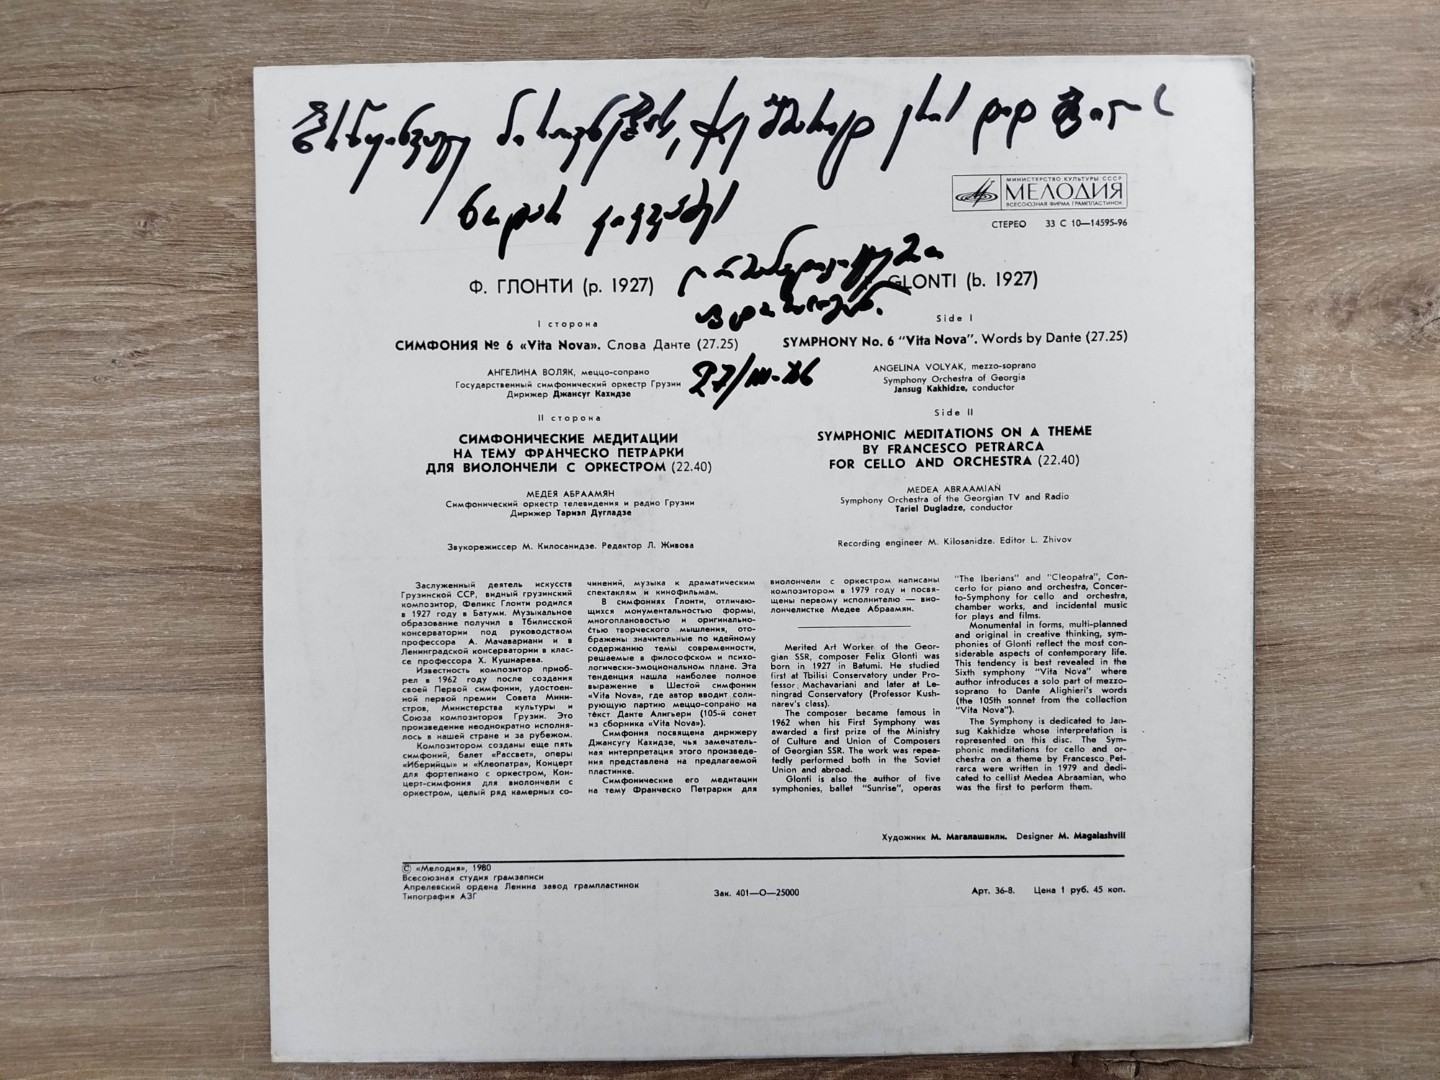 МИНИСТЕРСТВО КУЛЬТУРЫ СССР
МЕЛОДИЯ
ВСЕСОЮЗНАЯ ФИРМА ГРАМПЛАСТИНОК
СТЕРЕО 33 С 10—14595-96
Ф. ГЛОНТИ (р. 1927)
I сторона
СИМФОНИЯ № 6 «Vita Nova». Слова Данте (27.25)
АНГЕЛИНА ВОЛЯК, меццо-сопрано
Государственный симфонический оркестр Грузии
Дирижер Джансуг Кахидзе
II сторона
СИМФОНИЧЕСКИЕ МЕДИТАЦИИ
НА ТЕМУ ФРАНЧЕСКО ПЕТРАРКИ
ДЛЯ ВИОЛОНЧЕЛИ С ОРКЕСТРОМ (22.40)
МЕДЕЯ АБРААМЯН
Симфонический оркестр телевидения и радио Грузии
Дирижер Тариэл Дугладзе
Звукорежиссер М. Килосанидзе. Редактор Л. Живова
GLONTI (b. 1927)
Side I
SYMPHONY No. 6 "Vita Nova". Words by Dante (27.25)
ANGELINA VOLYAK, mezzo-soprano
Symphony Orchestra of Georgia
Jansug Kakhidze, conductor
Side II
SYMPHONIC MEDITATIONS ON A THEME
BY FRANCESCO PETRARCA
FOR CELLO AND ORCHESTRA (22.40)
MEDEA ABRAAMIAN
Symphony Orchestra of the Georgian TV and Radio
Tariel Dugladze, conductor
Recording engineer M. Kilosanidze. Editor L. Zhivov
Заслуженный деятель искусств
Грузинской ССР, видный грузинский
композитор, Феликс Глонти родился
в 1927 году в Батуми. Музыкальное
образование получил в Тбилисской
консерватории под руководством
профессора А. Мачавариани и в
Ленинградской консерватории в клас-
се профессора Х. Кушнарева.
Известность композитор приоб-
рел в 1962 году после создания
своей Первой симфонии, удостоен-
ной первой премии Совета Мини-
стров, Министерства культуры и
Союза композиторов Грузии. Это
произведение неоднократно исполня-
лось в нашей стране и за рубежом.
Композитором созданы еще пять
симфоний, балет «Рассвет», оперы
«Иберийцы» и «Клеопатра», Концерт
для фортепиано с оркестром, Кон-
церт-симфония для виолончели с
оркестром, целый ряд камерных со-
чинений, музыка к драматическим
спектаклям и кинофильмам.
В симфониях Глонти, отличаю-
щихся монументальностью формы,
многоплановостью и оригинально-
стью творческого мышления, ото-
бражены значительные по идейному
содержанию темы современности,
решаемые в философском и психо-
логически-эмоциональном плане. Эта
тенденция нашла наиболее полное
выражение в Шестой симфонии
«Vita Nova», где автор вводит соли-
рующую партию меццо-сопрано на
текст Данте Алигьери (105-й сонет
из сборника «Vita Nova»).
Симфония посвящена дирижеру
Джансугу Кахидзе, чья замечатель-
ная интерпретация этого произведе-
ния представлена на предлагаемой
пластинке.
Симфонические его медитации
на тему Франческо Петрарки для
виолончели с оркестром написаны
композитором в 1979 году и посвя-
щены первому исполнителю — вио-
лончелистке Медее Абраамян.
Merited Art Worker of the Geor-
gian SSR, composer Felix Glonti was
born in 1927 in Batumi. He studied
first at Tbilisi Conservatory under Pro-
fessor Machavariani and later at Le-
ningrad Conservatory (Professor Kush-
narev's class).
The composer became famous in
1962 when his First Symphony was
awarded a first prize of the Ministry
of Culture and Union of Composers
of Georgian SSR. The work was repea-
tedly performed both in the Soviet
Union and abroad.
Glonti is also the author of five
symphonies, ballet "Sunrise", operas
"The Iberians" and "Cleopatra", Con-
certo for piano and orchestra, Concer-
to-Symphony for cello and orchestra,
chamber works, and incidental music
for plays and films.
Monumental in forms, multi-planned
and original in creative thinking, sym-
phonies of Glonti reflect the most con-
siderable aspects of contemporary life.
This tendency is best revealed in the
Sixth symphony "Vita Nova" where
author introduces a solo part of mezzo-
soprano to Dante Alighieri's words
(the 105th sonnet from the collection
"Vita Nova").
The Symphony is dedicated to Jan-
sug Kakhidze whose interpretation is
represented on this disc. The Sym-
phonic meditations for cello and or-
chestra on a theme by Francesco Pet-
rarca were written in 1979 and dedi-
cated to cellist Medea Abraamian, who
was the first to perform them.
Художник М. Магалашвили. Designer M. Magalashvili
© «Мелодия», 1980
Всесоюзная студия грамзаписи
Апрелевский ордена Ленина завод грампластинок
Типография АЗГ
Зак. 401—О—25000
Арт. 36-8. Цена 1 руб. 45 коп.